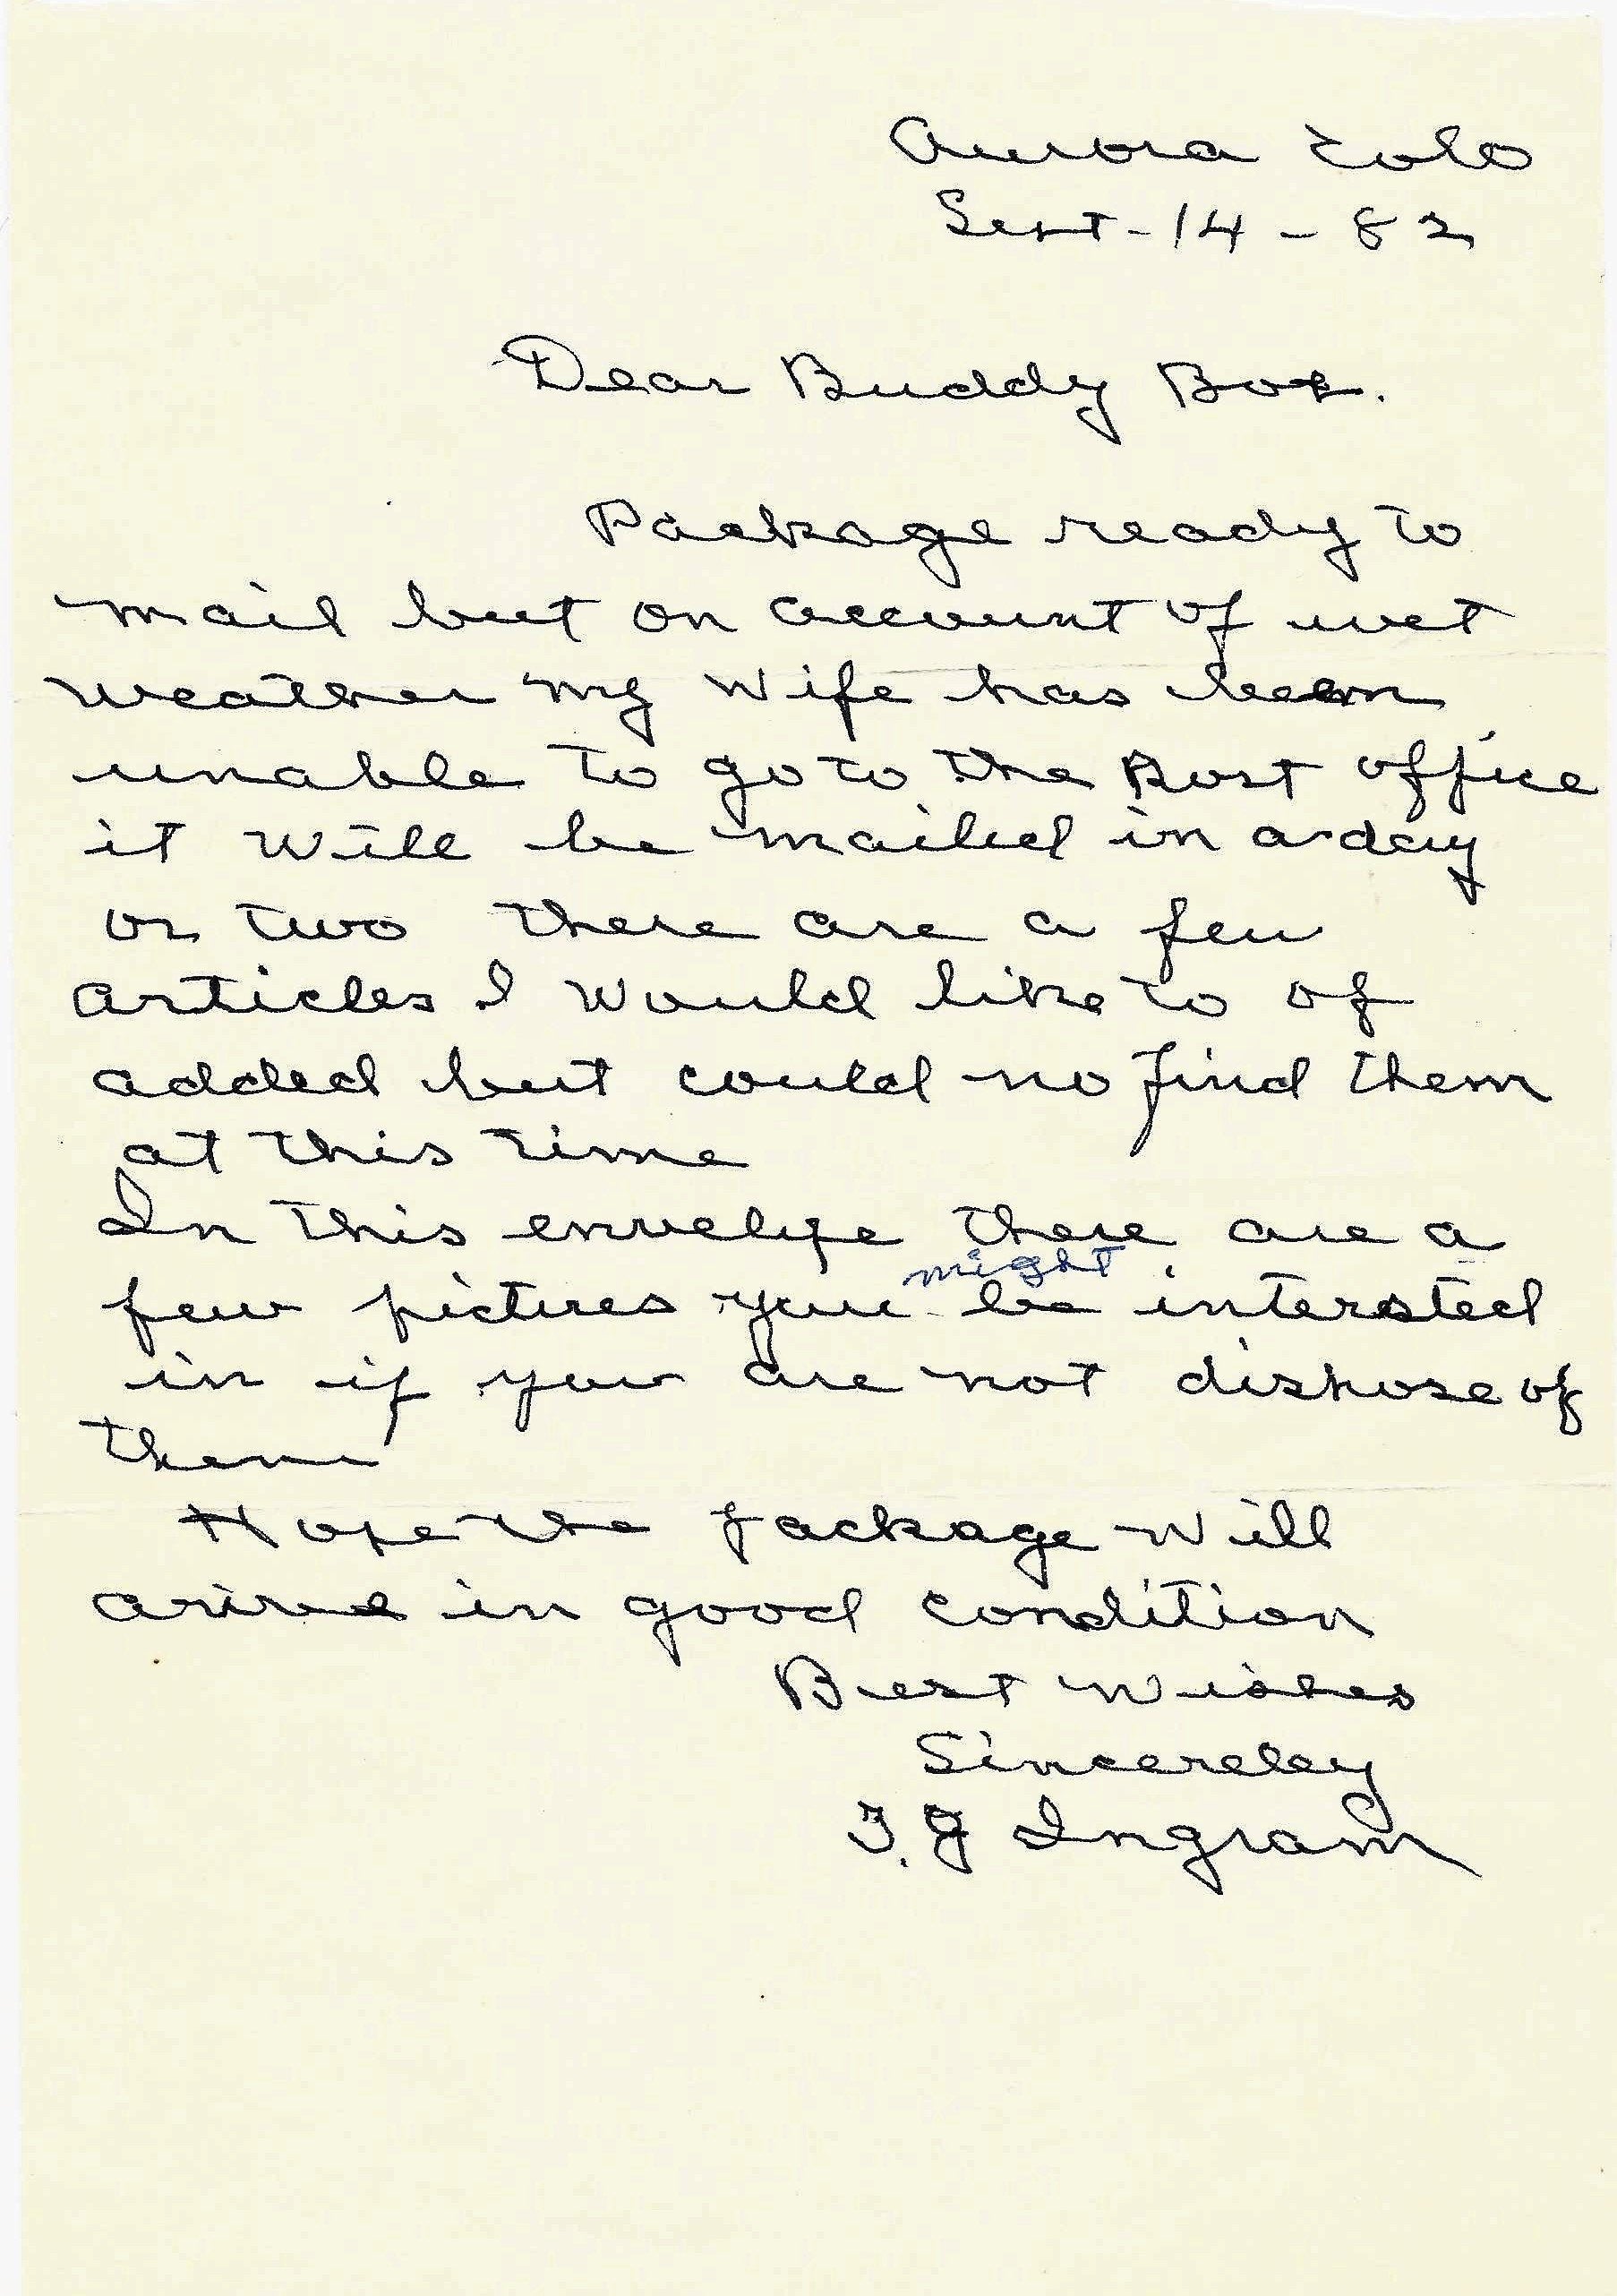 Aurora Colo
Sept-14-82
Dear Buddy Box.
Package ready to
mail but on account of wet
weather my wife has been
unable to go to the Post office
it will be mailed in a day
or two there are a few
articles I would like to of
added but could no find them
at this time
In this envelype there are a
few pictures you might be intersted
in if you are not dispose of
them
Hope the package will
arive in good condition
Best Wishes
Sincereley
T. J Ingram